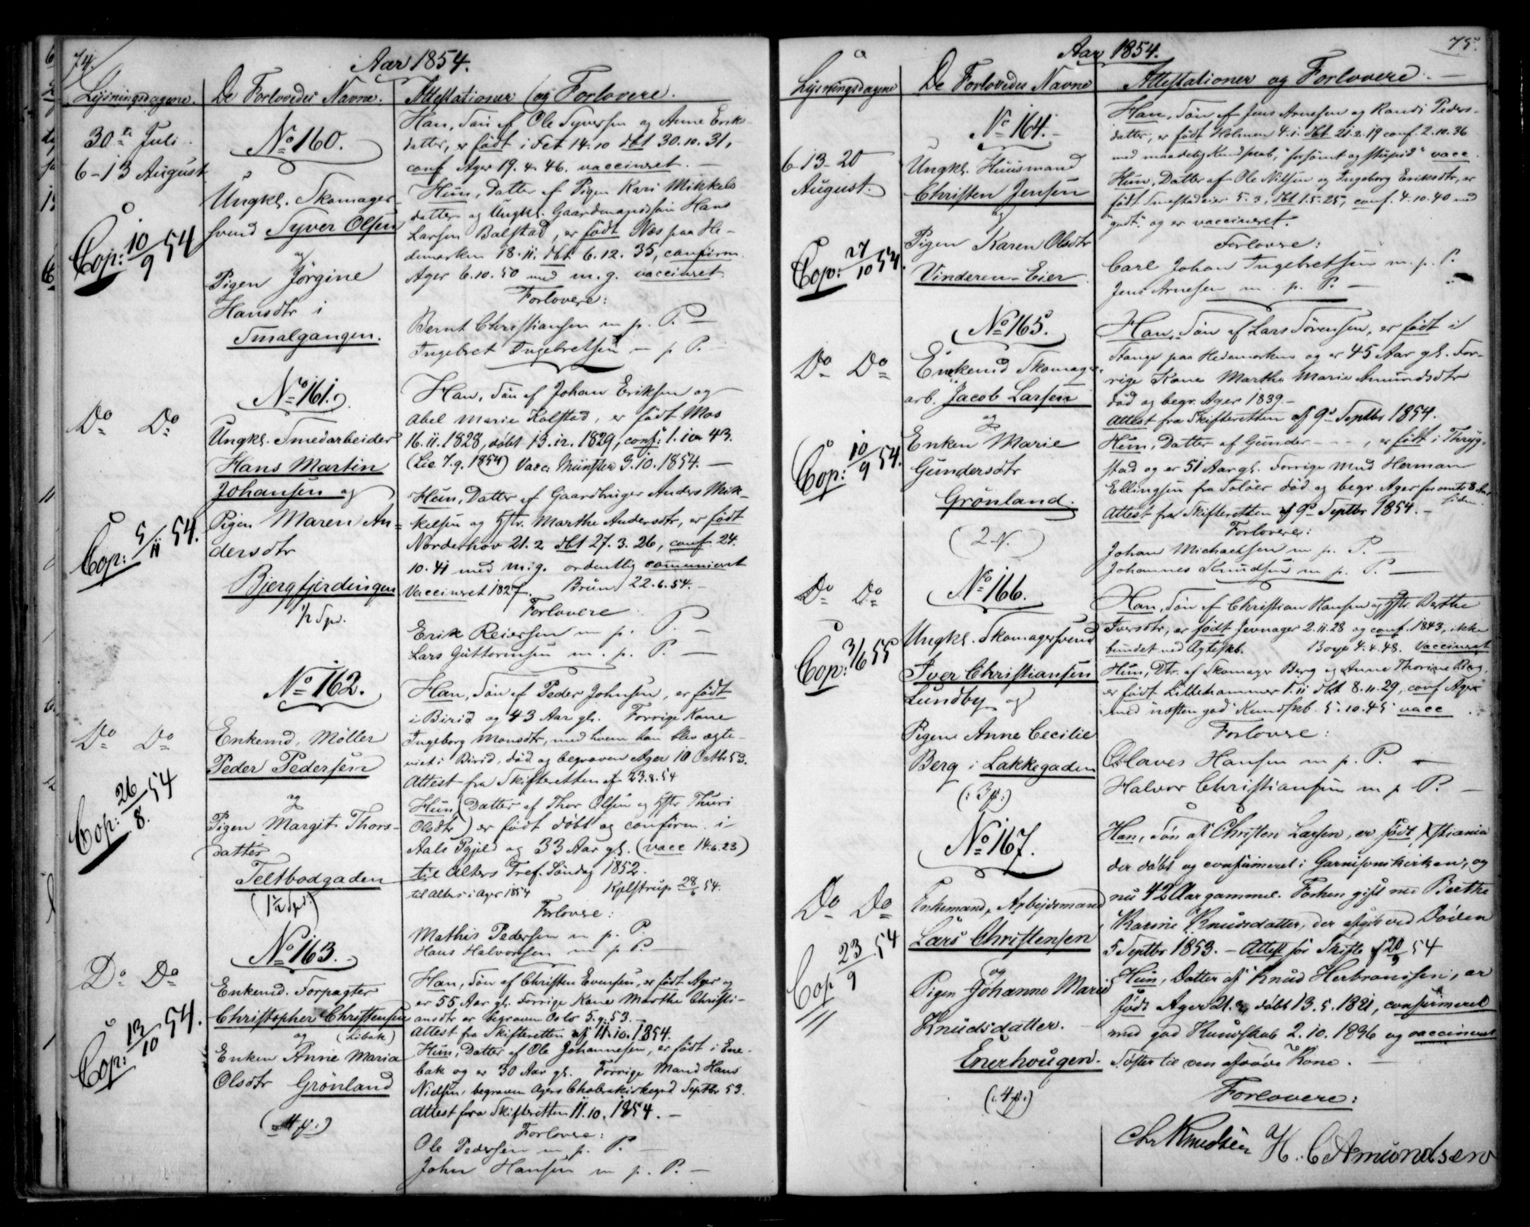 74.
Aar 1854.
Lysningsdagene. De Forlovedes Navne. Attestationer og Forlovere.
30te Juli
6-13 August
Cop: 10/9 54
No 160.
Ungkl. Skomager-
svend Syver Olsen
og
Pigen Jörgine
Hansdtr i
Smalgangen.
Han, Søn af Ole Syversen og Anne Erik-
datter, er født i Fet 14.10 dbt 30.10.31,
conf Ager 19.4.46. vaccineret.
Hun, Datter af Pigen Kari Mikkels
datter og Ungk. Gaardmandssøn Hans
Larsen Balstad, er født Næs paa He-
demarken 18.11. dbt 6.12.35, confirm.
Ager 6.10.50 med m.g. vaccineret
Forlovere:
Bernt Christiansen m.p. P.
Ingebret Ingebretsen m.p. P.
Do Do
Cop: 5/11 54.
No 161.
Ungkl. Smedarbeider
Hans Martin
Johansen og
Pigen Maren An-
dersdtr
Bjergfjerdingen
1/2 Sp.
Han, Søn af Johan Eriksen og
Abel Marie Kalstad, er født Mos
16.11.1828, døbt 13.12.1829, conf. 1. 43.
(Lie 7.9.1854) Vacc. Münster 3.10.1854.
Hun, Datter af Gaardbruger Anders Mik-
kelsen og Hstr. Marthe Andersdtr, er født
Norderhov 21.2 dbt 27.3.26, conf 24.
10.41 med m.g. ordentlig communicert
Vaccineret 1827. Bruun 22.6.54.
Forlovere
Erik Reiersen m.p. P.
Lars Guttormsen m.p. P.
Do Do
Cop: 26/8. 54
No 162.
Enkemd. Møller
Peder Pedersen
og
Pigen Margit Thors-
datter
Teltbodgaden
(1 1/2 Sp.)
Han, Søn af Peder Johnsen, er født
i Birid og 43 Aar gl. Forrige Kone
Ingeborg Monsdtr, med hvem han blev ægte-
viet i Birid, død og begraven Ager 10 Octb 53.
Attest fra Skifteretten af 23.8.54
Hun (Datter af Thor Olsen og Hstr Thuri
Olsdtr) er født døbt og confirm. i
Aals Pgjeld og 33 Aar gl. (vacc 14.6.23)
til Alters Tref. Søndag 1852.
til Alters i Apr 1854 Kjelstrup 28/8 54.
Forlovere:
Mathis Pedersen m.p. P.
Hans Halvorsen m.p. P.
Do Do
Cop: 13/10 54.
No 163.
Enkemd. Forpagter
Christopher Christensen
og
Enken Anne Maria
Olsdtr Grønland
(4 p.)
Han, Søn af Christen Evensen, er født Ager og
er 55 Aar gl. Forrige Kone Marthe Christi-
ansdtr er begraven Oslo 5.9.53.
Attest fra Skifteretten af 11.10.1854.
Hun, Datter af Ole Johannesen, er født i Ene-
bak og er 30 Aar gl. Forrige Mand Hans
Nielsen, begraven Agers Cholerakirkegaard Septbr 53.
Attest fra Skifteretten 11.10.1854.
Forlovere:
Ole Pedersen m.p. P.
John Hansen m.p. P.
75.
Aar 1854.
Lysningsdagene De Forlovedes Navne Attestationer og Forlovere.
6-13-20
August.
Cop: 27/10 54.
No 164.
Ungkl. Huusmand
Christen Jensen
og
Pigen Karen Olsdtr
Vinderen-Eier
Han, Søn af Jens Arnesen og Randi Peders-
datter, er født Holmen 4.1. dbt 21.2.19 conf. 2.10.36
med maadelig Kundskab, "forsømt og stupid" vacc.
Hun, Datter af Ole Nilsen og Ingeborg Eriksdtr, er
født 5.3. dbt 1.5.25, conf. 4.10.40 med
"godt" og er vaccineret.
Forlovere:
Carl Johan Ingebretsen m.p. P.
Jens Arnesen m.p. P.
Do Do
Cop: 10/9 54.
No 165.
Enkemd Skomager-
arb. Jacob Larsen
og
Enken Marie
Gundersdtr
Grønland.
Han, Søn af Lars Sörensen, er født i
Stange paa Hedemarken og er 45 Aar gl. For-
rige Kone Marthe Marie Amundsdtr
død og begr. Ager 1839.
Attest fra Skifteretten af 9de Septbr 1854.
Hun, Datter af Gunder - - -, er født i Thryg-
stad og er 51 Aar gl. Forrige Mand Herman
Ellingsen fra død og begr. Ager for omtr 8 Aar
siden.
Attest fra Skifteretten af 9de Septbr 1854.
Forlovere:
Johan Michaelsen m.p. P.
Johannes Knudsen m.p. P.
Do Do
Cop: 3/6 55
No 166.
Ungkl. Skomagersvend
Iver Christiansen
Lundby og
Pigen Anne Cecilie
Berg i Lakkegaden
(: 3 p:)
Han, Søn af Christian Hansen og Hstr Berthe
Iversdtr, er født Jevnager 2.11.28 og conf. 1843, ikke
bundet ved Ægteskb. 4.4.48. Vaccineret
Hun, Dtr. af Skomager Berg og Anne Thorine Berg,
er født Lillehammer 1.11 dbt 8.11.29, conf Ager
med næsten god Kundskb. 5.10.45 vacc
Forlovere:
Olaves Hansen m.p. P.
Halvor Christiansen m.p P.
Do Do
Cop 23/9 54
No 167.
Enkemand, Arbejdsmand
Lars Christensen
og
Pigen Johanne Marie
Knudsdatter.
Enerhougen.
(: 4 p:)
Han, Søn af Christen Larsen, er født, Xstiania
der døbt og confirmeret i Garnisonskirken, og
nu 42 Aar gammel. Forhen gift med Berthe
Karine Knudsdatter, der afgik ved Døden
5 Septbr 1853. - Attest for Skifte 20/9 54
Hun, Datter af Knud Herbrandsen, er
født Ager 21.2 døbt 13.5.1821, confirmeret
med god Kundskab 2.10.1836 og vaccineret
Søster til den afdøde Kone.
Forlovere:
Chr Knudsen H. C Amundsen